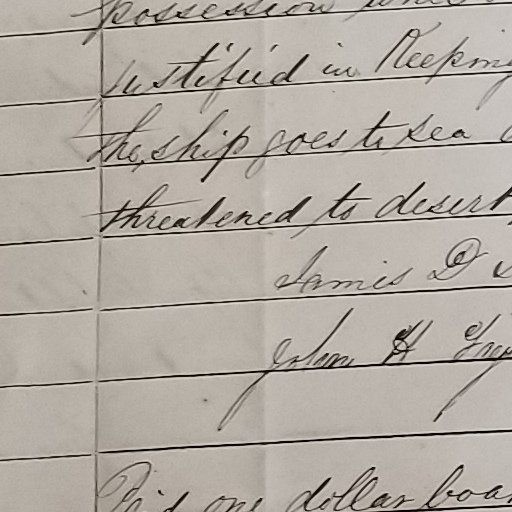 possession
justified in Keeping
the ship goes to sea
threatened to desert
James D
John H
Paid one dollar boar